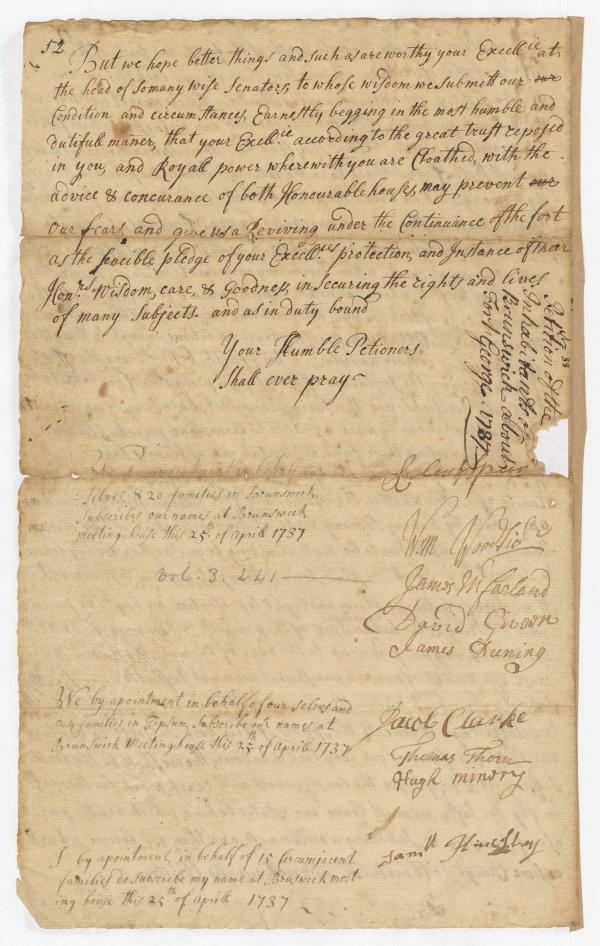 52
But we hope better things and such as are worthy your Excell:ie at
the head of so many wise Senators, to whose wisdom we submitt our our
Condition and circumstances, Earnestly begging in the most humble and
dutifull maner, that your Excell:ie according to the great trust reposed
in you, and Royall power wherewith you are Cloathed, with the
advice & concurance of both Honourable houses, may prevent our
our fears, and give us a Reviving under the Continuance of the fort
as the sencible pledge of your Excell:ies protection, and Instance of their
Hon:rs wisdom, care, & Goodness, in securing the rights and lives
of many Subjects. and as in duty bound
Your Humble Petioners
Shall ever pray
Petition of the
Inhabitants of
Brunswick about
Fort George. 1737
88
selves, & 20 families in Brunswick,
Subscribes our names at Brunswick
meeting house this 25th of aprill 1737
Vol. 3. 241
Wm. Woodside
James McFarland
David Giveen
James Duning
We by apointment in behalf of our selves and
families in Topsum, Subscribe our names at
Brunswick Meeting house this 25th of aprill 1737
Jacob Clarke
Thomas Thorn
Hugh minery
I by apointment, in behalf of 15 Circumjacent
families do suscribe my name at Bruswick meet=
ing house this 25th of aprill 1737
Samll Hinckley